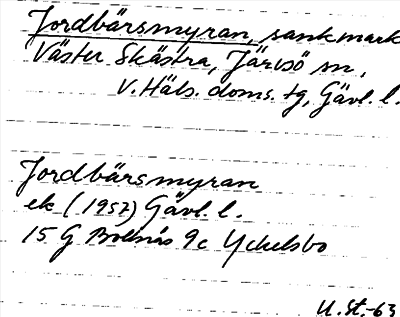 Jordbärsmyran, sankmark
Väster Skästra, Järvsö sn,
V. Häls. doms. tg, Gävl. l.
Jordbärsmyran
ek (1957) Gävl. l.
15 G Bollnäs 9c Yckelsbo
U. St. -63